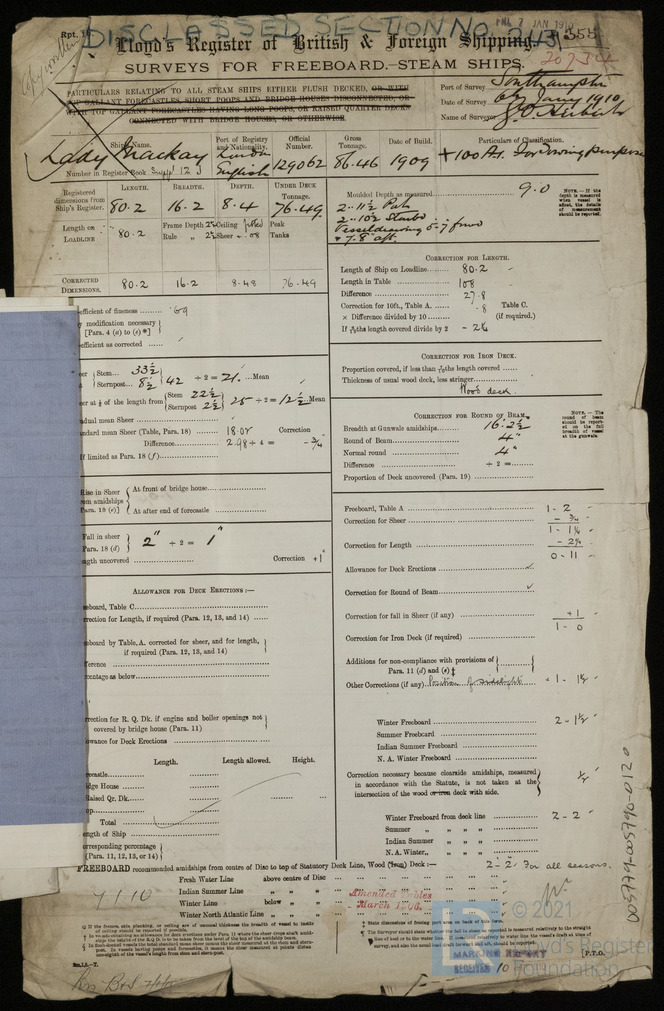 DISCLASSED SECTION No. 243
JAN 1910
355
Rpt.
Lloyd's Register of British & Foreign Shipping.
SURVEYS FOR FREEBOARD.—STEAM SHIPS.
PARTICULARS RELATING TO ALL STEAM SHIPS EITHER FLUSH DECKED, OR WITH
TOP GALLANT FORECASTLES, SHORT POOPS AND BRIDGE HOUSES DISCONNECTED, OR
WITH TOP GALLANT FORECASTLES HAVING LONG POOPS, OR RAISED QUARTER DECKS
CONNECTED WITH BRIDGE HOUSES, OR OTHERWISE.
Port of Survey Southampton
Date of Survey 6th Jany 1910
Name of Surveyor
Ship's Name. Port of Registry and Nationality. Official Number. Gross Tonnage. Date of Build. Particulars of Classification.
Lady Mackay London English 129062 86.46 1909 +100 A1. For towing purposes
Number in Register Book Suppt 123
Registered dimensions from Ship's Register. LENGTH. BREADTH. DEPTH. UNDER DECK TONNAGE.
80.2 16.2 8.4 76.49
Length on LOADLINE 80.2 Frame Depth Ceiling fitted Peak
Rule Sheer + .08 Tanks
CORRECTED DIMENSIONS. 80.2 16.2 8.48 76.49
Moulded Depth as measured 9.0
NOTE.—If the depth is measured when vessel is afloat, the details of measurement should be reported.
2.. 11½ Port
2.. 10½ Starbd
Vessel drawing 5-7 ford
+ 7.8" aft.
CORRECTION FOR LENGTH.
Length of Ship on Loadline 80.2
Length in Table 108
Difference 27.8
Correction for 10ft., Table A. .8 Table C.
× Difference divided by 10 (if required.)
If 6/10ths length covered divide by 2 - 2¼
efficient of fineness .69
y modification necessary
[Para. 4 (a) to (e)*]
efficient as corrected
CORRECTION FOR IRON DECK.
Proportion covered, if less than 7/10ths length covered
Thickness of usual wood deck, less stringer
Wood deck.
Stem 33½
Sternpost 8½ } 42 ÷ 2 = 21. Mean
er at ⅛ of the length from { Stem 22½ Sternpost 2½ } 25 ÷ 2 = 12½ Mean
dual mean Sheer
ndard mean Sheer (Table, Para. 18) 18.02 Correction
Difference 2.98 ÷ 4 = - ¾
If limited as Para. 18 (f)
CORRECTION FOR ROUND OF BEAM.
Breadth at Gunwale amidships 16.2½
Round of Beam 4"
Normal round 4"
Difference ÷ 2 =
Proportion of Deck uncovered (Para. 19)
NOTE.—The round of beam should be reported on the full breadth of vessel at the gunwale.
Rise in Sheer from amidships [Para. 18 (e)] { At front of bridge house
At after end of forecastle
Fall in sheer Para. 18 (d) 2" ÷ 2 = 1"
ngth uncovered Correction +1"
Freeboard, Table A 1 - 2
Correction for Sheer - ¾
1 - 1¼
Correction for Length - 2¼
0 - 11
Allowance for Deck Erections
Correction for Round of Beam
Correction for fall in Sheer (if any) +1
1 - 0
Correction for Iron Deck (if required)
Additions for non-compliance with provisions of
Para. 11 (d) and (e)‡
Other Corrections (if any) Position of sidelights + 1 - 1½
ALLOWANCE FOR DECK ERECTIONS:—
eeboard, Table C
rrection for Length, if required (Para. 12, 13, and 14)
eeboard by Table, A. corrected for sheer, and for length,
if required (Para. 12, 13, and 14)
fference
rcentage as below
rrection for R. Q. Dk. if engine and boiler openings not
covered by bridge house (Para. 11)
owance for Deck Erections
Length. Length allowed. Height.
castle
idge House
Raised Qr. Dk.
op
Total
ength of Ship
orresponding percentage
(Para. 11, 12, 13, or 14)
Winter Freeboard 2 - 1½
Summer Freeboard
Indian Summer Freeboard
N. A. Winter Freeboard
Correction necessary because clearside amidships, measured
in accordance with the Statute, is not taken at the
intersection of the wood or iron deck with side. ½
Winter Freeboard from deck line 2 - 2
Summer " " "
Indian Summer " "
N. A. Winter, " "
FREEBOARD recommended amidships from centre of Disc to top of Statutory Deck Line, Wood (Iron) Deck:— 2 - 2 For all seasons.
Fresh Water Line above centre of Disc
Indian Summer Line " "
Winter Line below "
Winter North Atlantic Line " "
7.1.10
Amended Tables
March 1906.
† State dimensions of freeing port area on back of this form.
[P.T.O.
© 2021
Lloyd's Register
Foundation
005749-005795-0120